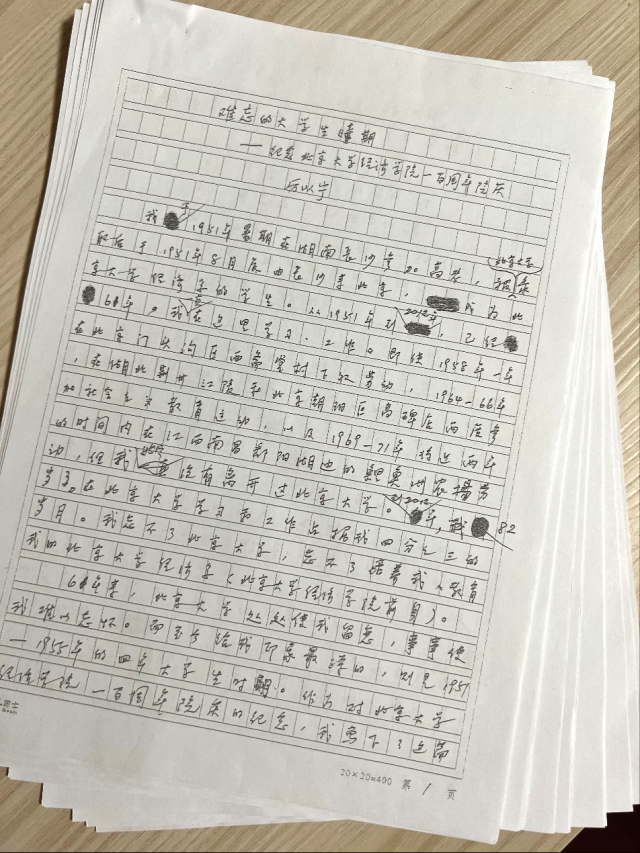 难忘的大学生时期
——纪念北京大学经济学院一百周年院庆
厉以宁
我于1951年暑期在湖南长沙参加高考,被北京大学录
取后于1951年8月底由长沙来北京,成为北
京大学经济系的学生。从1951年到2012年,已经
60年。我一直在这里学习、工作。即使1958年一年
在北京门头沟区西斋堂村下放劳动,1964-66年
,在湖北荆州江陵和北京朝阳区高碑店两度参
加社会主义教育运动,以及1969-71年将近两年
的时间内在江西南昌鄱阳湖边的鲤鱼洲农场劳
动,但我始终没有离开过北京大学。到2012年,我82
岁了。在北京大学学习和工作占据我四分之三的
岁月。我忘不了北京大学,忘不了培养我、教育
我的北京大学经济系(北京大学经济学院前身)。
60年来,北京大学处处使我留恋,事事使
我难以忘怀。而至今给我印象最深的,则是1951
—1955年的四年大学生时期。作为对北京大学
经济学院一百周年院庆的纪念,我写下了这篇
20×20=400 第 1 页